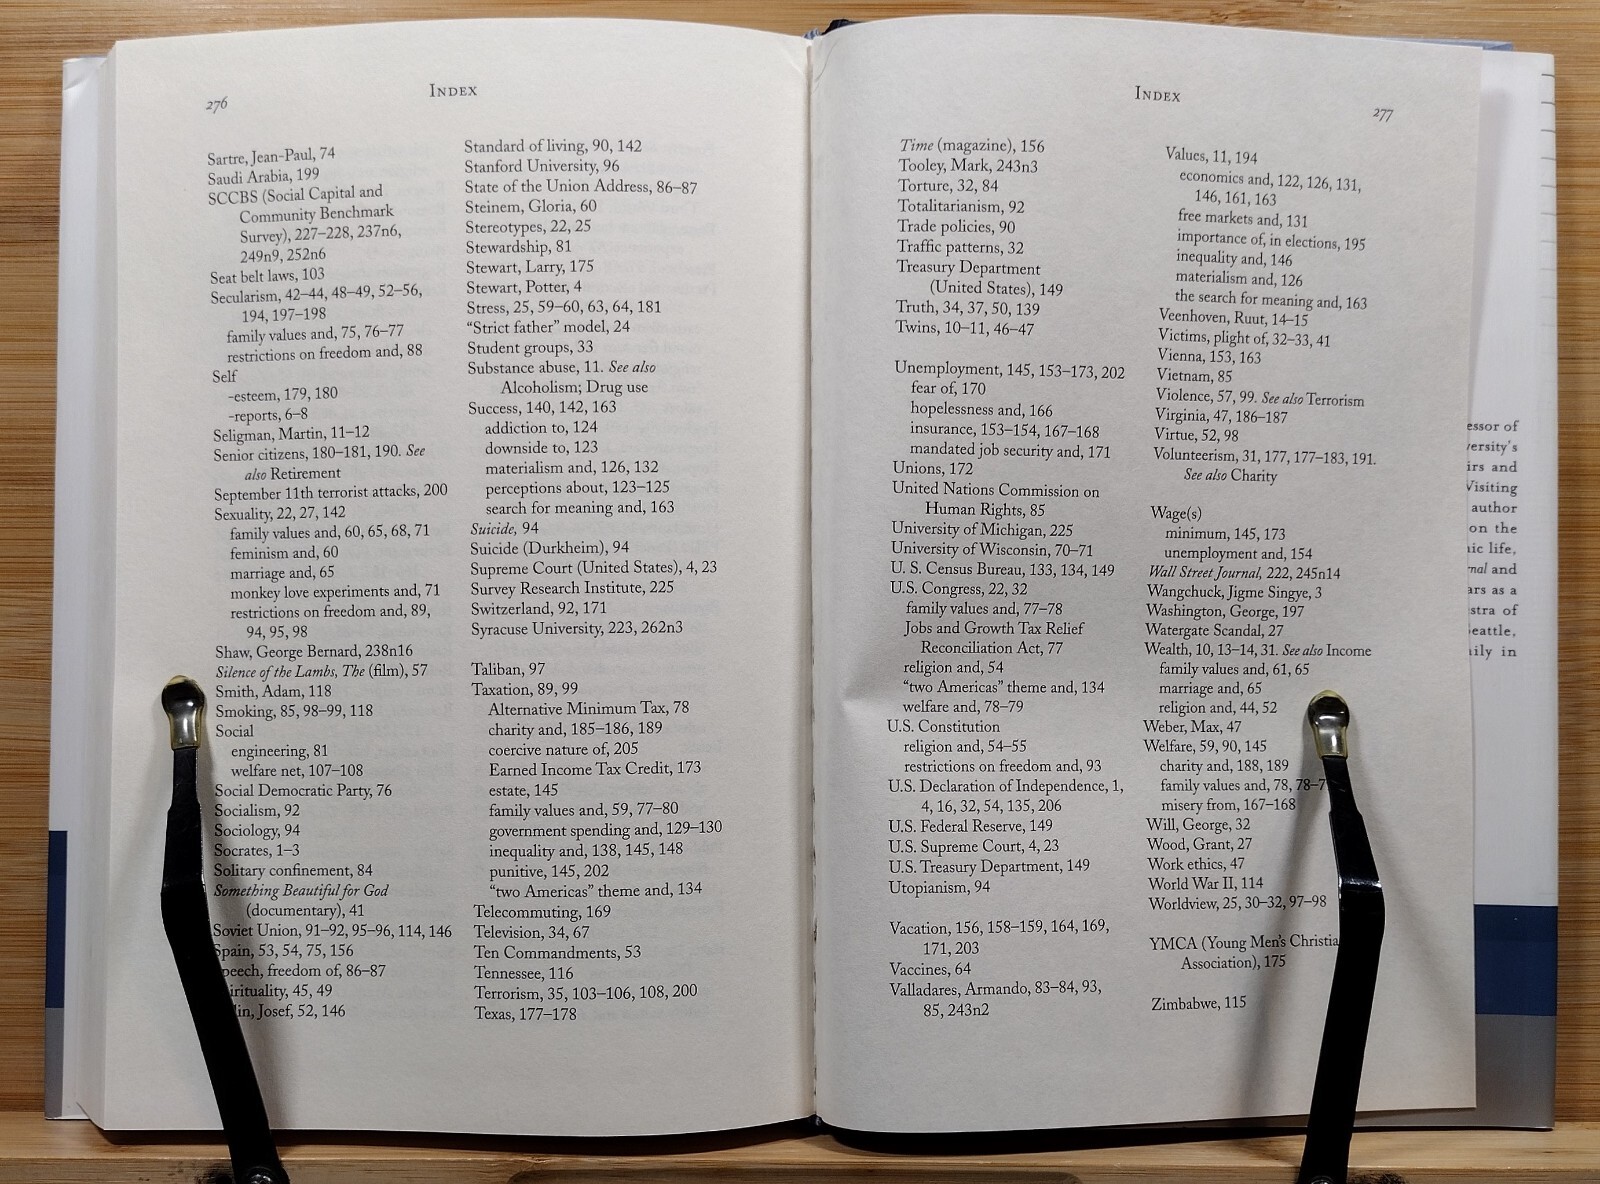 276
INDEX
Sartre, Jean-Paul, 74
Saudi Arabia, 199
SCCBS (Social Capital and
Community Benchmark
Survey), 227–228, 237n6,
249n9, 252n6
Seat belt laws, 103
Secularism, 42–44, 48–49, 52–56,
194, 197–198
family values and, 75, 76–77
restrictions on freedom and, 88
Self
-esteem, 179, 180
-reports, 6–8
Seligman, Martin, 11–12
Senior citizens, 180–181, 190. See
also Retirement
September 11th terrorist attacks, 200
Sexuality, 22, 27, 142
family values and, 60, 65, 68, 71
feminism and, 60
marriage and, 65
monkey love experiments and, 71
restrictions on freedom and, 89,
94, 95, 98
Shaw, George Bernard, 238n16
Silence of the Lambs, The (film), 57
Smith, Adam, 118
Smoking, 85, 98–99, 118
Social
engineering, 81
welfare net, 107–108
Social Democratic Party, 76
Socialism, 92
Sociology, 94
Socrates, 1–3
Solitary confinement, 84
Something Beautiful for God
(documentary), 41
Soviet Union, 91–92, 95–96, 114, 146
Spain, 53, 54, 75, 156
peech, freedom of, 86–87
irituality, 45, 49
lin, Josef, 52, 146
Standard of living, 90, 142
Stanford University, 96
State of the Union Address, 86–87
Steinem, Gloria, 60
Stereotypes, 22, 25
Stewardship, 81
Stewart, Larry, 175
Stewart, Potter, 4
Stress, 25, 59–60, 63, 64, 181
“Strict father” model, 24
Student groups, 33
Substance abuse, 11. See also
Alcoholism; Drug use
Success, 140, 142, 163
addiction to, 124
downside to, 123
materialism and, 126, 132
perceptions about, 123–125
search for meaning and, 163
Suicide, 94
Suicide (Durkheim), 94
Supreme Court (United States), 4, 23
Survey Research Institute, 225
Switzerland, 92, 171
Syracuse University, 223, 262n3
Taliban, 97
Taxation, 89, 99
Alternative Minimum Tax, 78
charity and, 185–186, 189
coercive nature of, 205
Earned Income Tax Credit, 173
estate, 145
family values and, 59, 77–80
government spending and, 129–130
inequality and, 138, 145, 148
punitive, 145, 202
“two Americas” theme and, 134
Telecommuting, 169
Television, 34, 67
Ten Commandments, 53
Tennessee, 116
Terrorism, 35, 103–106, 108, 200
Texas, 177–178
INDEX
277
Time (magazine), 156
Tooley, Mark, 243n3
Torture, 32, 84
Totalitarianism, 92
Trade policies, 90
Traffic patterns, 32
Treasury Department
(United States), 149
Truth, 34, 37, 50, 139
Twins, 10–11, 46–47
Unemployment, 145, 153–173, 202
fear of, 170
hopelessness and, 166
insurance, 153–154, 167–168
mandated job security and, 171
Unions, 172
United Nations Commission on
Human Rights, 85
University of Michigan, 225
University of Wisconsin, 70–71
U. S. Census Bureau, 133, 134, 149
U.S. Congress, 22, 32
family values and, 77–78
Jobs and Growth Tax Relief
Reconciliation Act, 77
religion and, 54
“two Americas” theme and, 134
welfare and, 78–79
U.S. Constitution
religion and, 54–55
restrictions on freedom and, 93
U.S. Declaration of Independence, 1,
4, 16, 32, 54, 135, 206
U.S. Federal Reserve, 149
U.S. Supreme Court, 4, 23
U.S. Treasury Department, 149
Utopianism, 94
Vacation, 156, 158–159, 164, 169,
171, 203
Vaccines, 64
Valladares, Armando, 83–84, 93,
85, 243n2
Values, 11, 194
economics and, 122, 126, 131,
146, 161, 163
free markets and, 131
importance of, in elections, 195
inequality and, 146
materialism and, 126
the search for meaning and, 163
Veenhoven, Ruut, 14–15
Victims, plight of, 32–33, 41
Vienna, 153, 163
Vietnam, 85
Violence, 57, 99. See also Terrorism
Virginia, 47, 186–187
Virtue, 52, 98
Volunteerism, 31, 177, 177–183, 191.
See also Charity
Wage(s)
minimum, 145, 173
unemployment and, 154
Wall Street Journal, 222, 245n14
Wangchuck, Jigme Singye, 3
Washington, George, 197
Watergate Scandal, 27
Wealth, 10, 13–14, 31. See also Income
family values and, 61, 65
marriage and, 65
religion and, 44, 52
Weber, Max, 47
Welfare, 59, 90, 145
charity and, 188, 189
family values and, 78, 78–7
misery from, 167–168
Will, George, 32
Wood, Grant, 27
Work ethics, 47
World War II, 114
Worldview, 25, 30–32, 97–98
YMCA (Young Men's Christia
Association), 175
Zimbabwe, 115
essor of
versity's
irs and
Visiting
author
on the
ic life,
rnal and
ars as a
stra of
eattle,
ily in